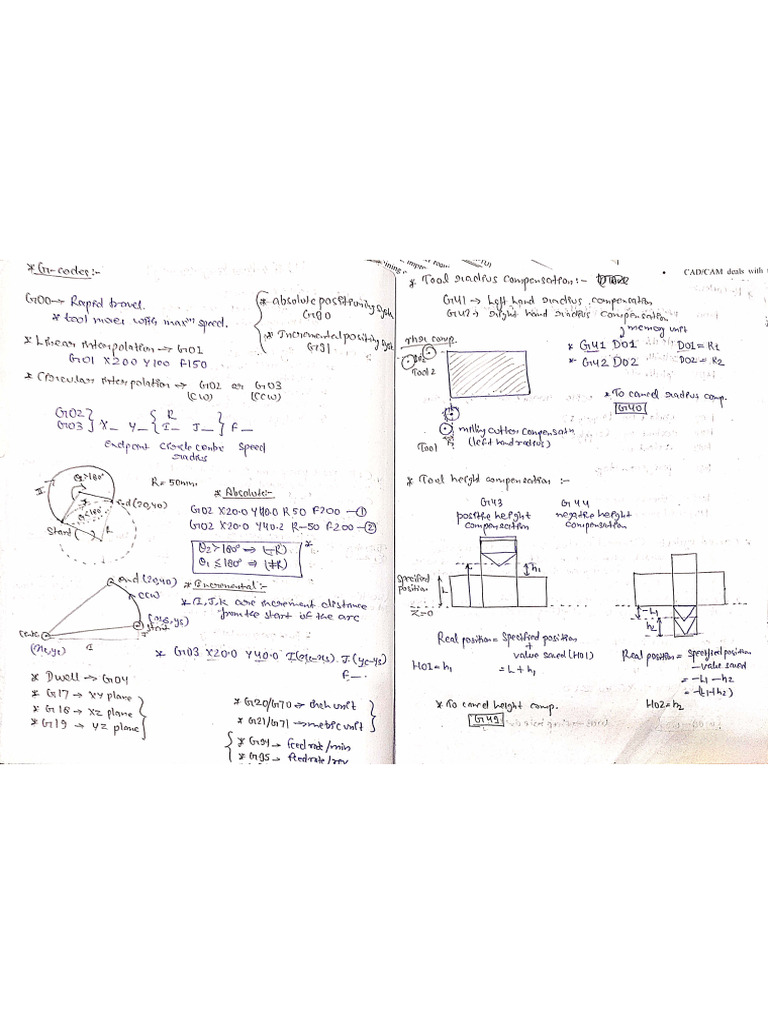 * G-codes:-
G00 → Rapid travel.
* tool moves with maxm speed.
* absolute positioning syst
G90
* Incremental positing syst
G91
* Linear interpolation → G01
G01 X20.0 Y10.0 F150
* Circular interpolation → G02 or G03
(CW) (CCW)
G02
G03 } X_ Y_ { R
I_ J_ } F_
Endpoint Circle centre Speed
radius
θ2>180°
R = 50mm.
II
I
end (20,40)
θ≤180°
R
Start
* Absolute:-
G02 X20.0 Y40.0 R50 F200 — ①
G02 X20.0 Y40.2 R-50 F200 — ②
θ2 > 180° ⇒ (-R)
θ1 ≤ 180° ⇒ (+R)
*
* Incremental:-
end (20,40)
CCW
* I, J, K are increment distance
from the start of the arc
(xs, ys)
start
J
centre
(xc, yc)
I
* G03 X20.0 Y40.0 I(xc-xs). J(yc-ys)
F_.
* Dwell → G04
* G17 → XY plane
* G18 → XZ plane
* G19 → YZ plane
* G20/G70 → inch unit
* G21/G71 → metric unit
* G94 → feed rate/min
* G95 → feed rate/rev
• CAD/CAM deals with
* Tool radius compensation:-
G41 → Left hand radius compensation
G42 → right hand radius compensation
memory unit
rhsr comp.
* G41 D01 D01 = R1
* G42 D02 D02 = R2
Tool 2
* To cancel radius comp.
G40
milling cutter compensatn
(left hand radius)
Tool
* Tool height compensation :-
G43 G44
positive height negative height
compensation compensation
h1
Specified
position
L
Z=0
-L1
h2
Real position = Specified position
+
value saved (H01)
H01 = h1 = L + h1
Real position = Specified position
- value saved
= -L1 - h2
= -(L1+h2)
H02 = h2
* To cancel height comp.
G49